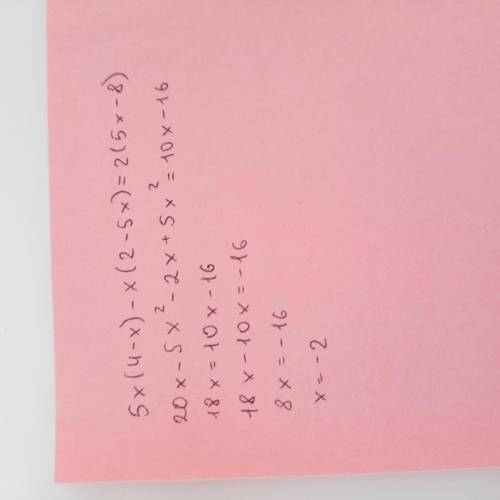 5x(4-x)-x(2-5x)=2(5x-8)
20x-5x²-2x+5x²=10x-16
18x=10x-16
18x-10x=-16
8x=-16
x=-2